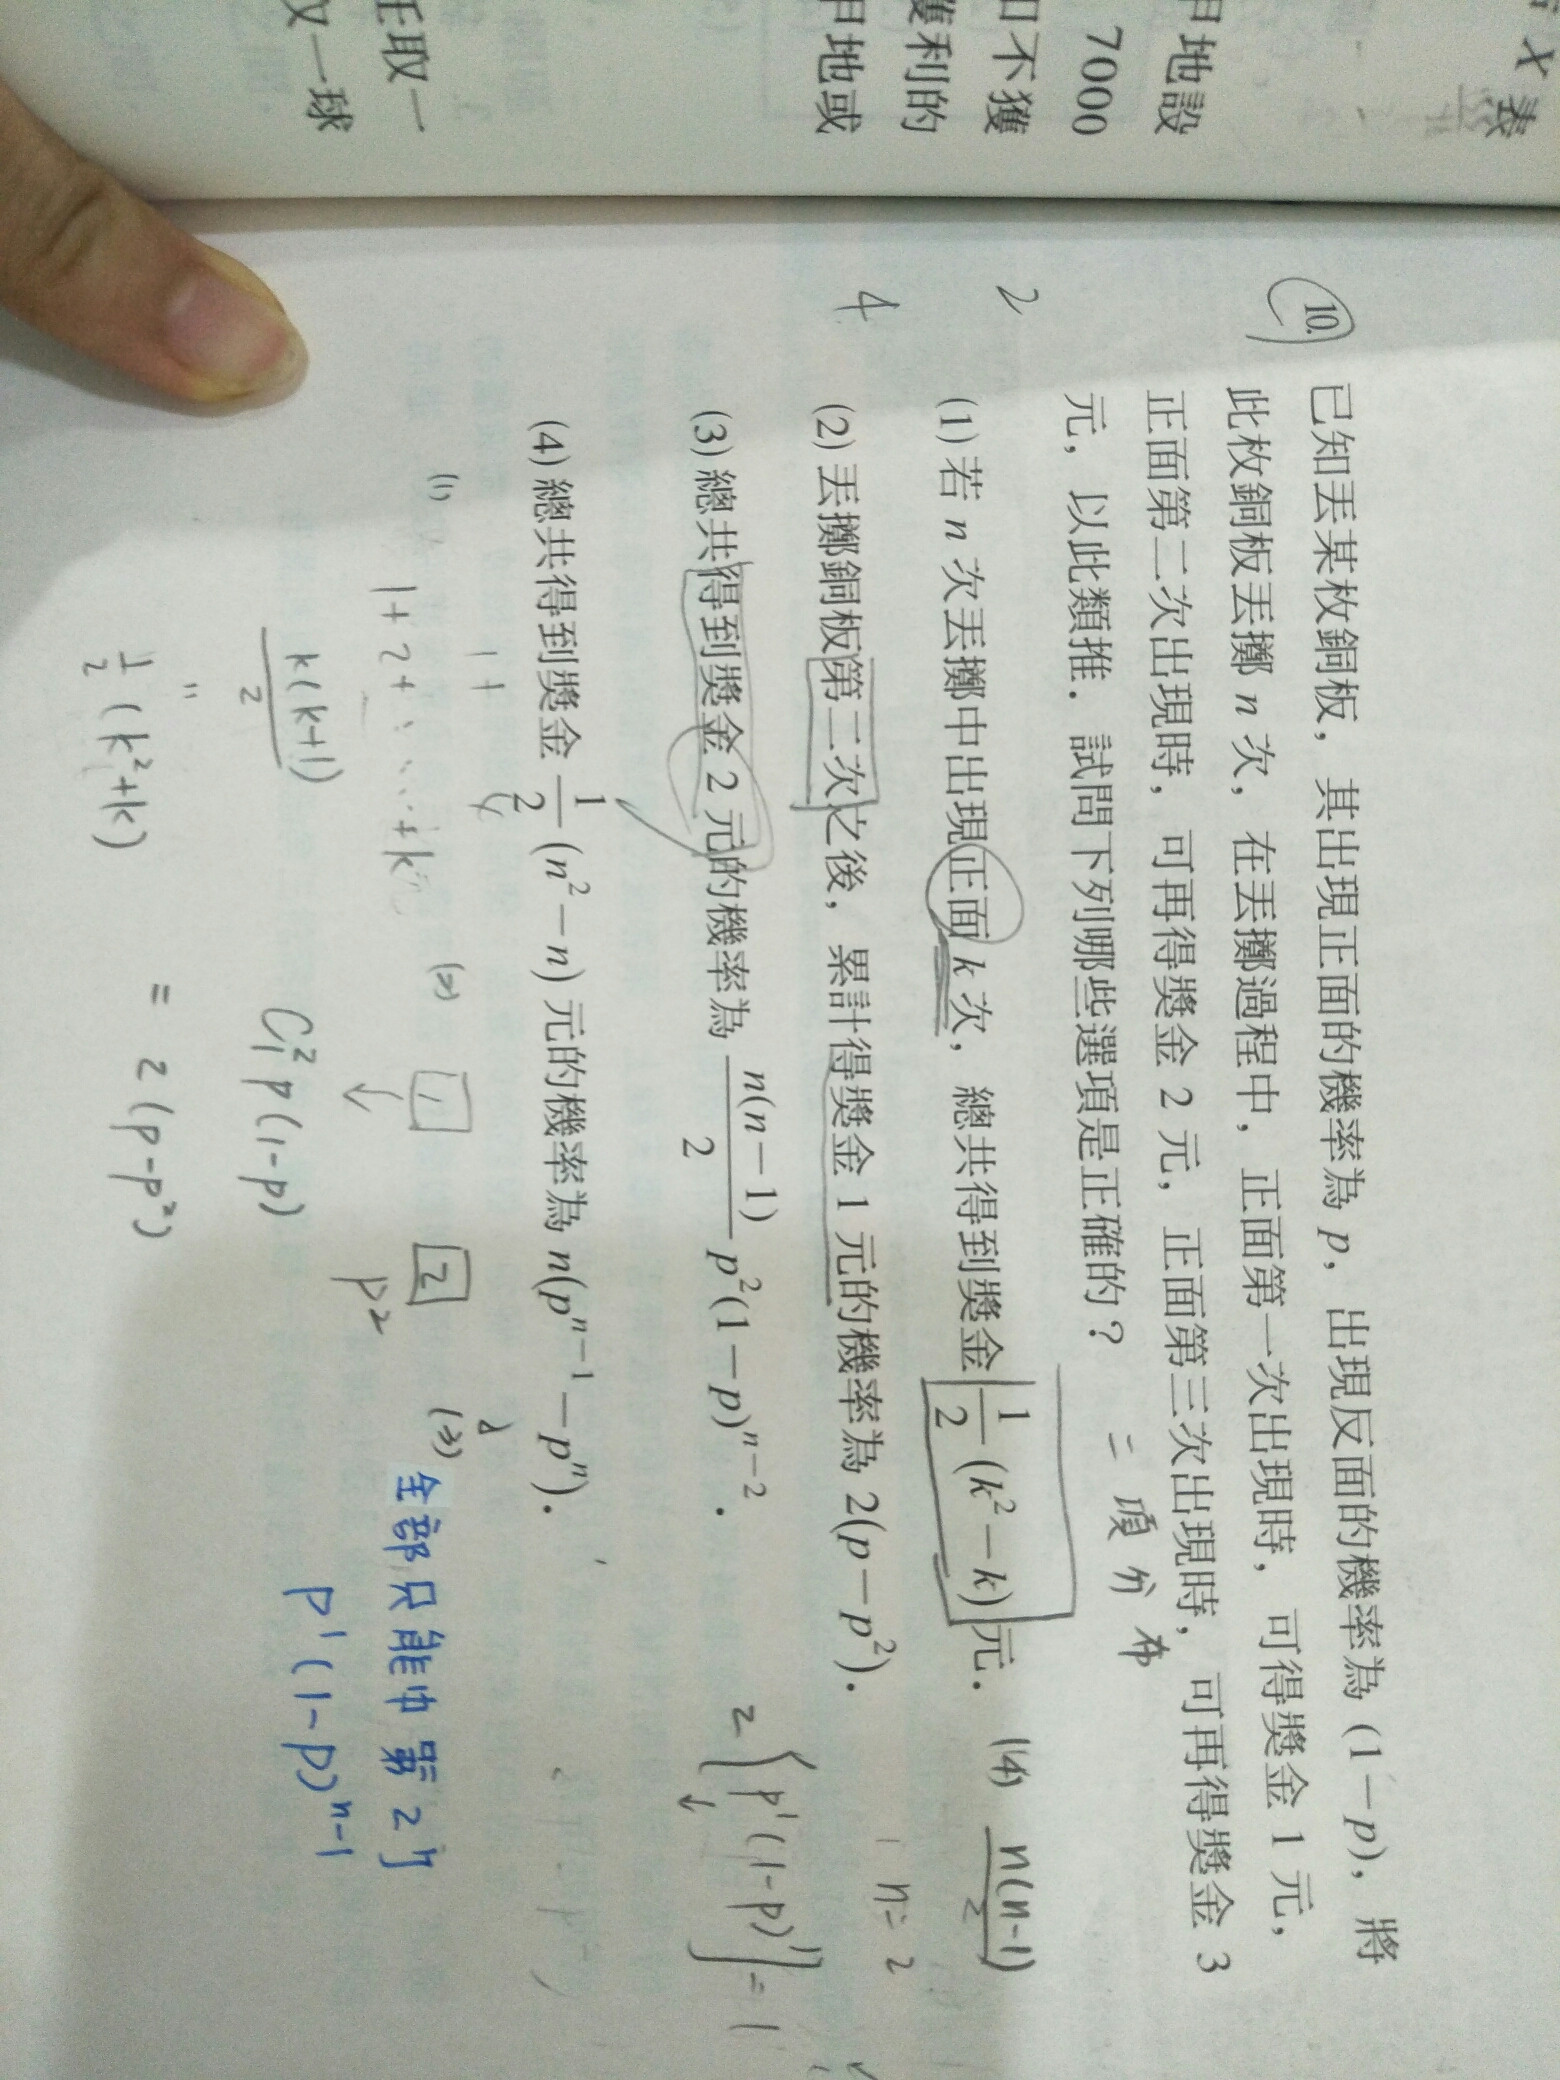 甲地設
7000
和不獲
獲利的
甲地或
任取一
又一球
10.
已知丟某枚銅板，其出現正面的機率為 p，出現反面的機率為 (1－p)，將
此枚銅板丟擲 n 次，在丟擲過程中，正面第一次出現時，可得獎金 1 元，
正面第二次出現時，可再得獎金 2 元，正面第三次出現時，可再得獎金 3
元，以此類推．試問下列哪些選項是正確的？
二項分布
2
4
(1) 若 n 次丟擲中出現正面 k 次，總共得到獎金 1/2 (k²－k) 元．
(2) 丟擲銅板第二次之後，累計得獎金 1 元的機率為 2(p－p²)．
(3) 總共得到獎金 2 元的機率為 n(n－1)/2 p²(1－p)ⁿ⁻²．
(4) 總共得到獎金 1/2 (n²－n) 元的機率為 n(pⁿ⁻¹－pⁿ)．
(4) n(n-1)/2
n=2
2{p¹(1-p)¹}=1
(1)
1+
1+2+....+k
k(k+1)/2
"
1/2 (k²+k)
(2)
1
2
p²
C²₁ p(1-p)
= 2(p-p²)
(3)
全部只能中第2次
p¹(1-p)ⁿ⁻¹